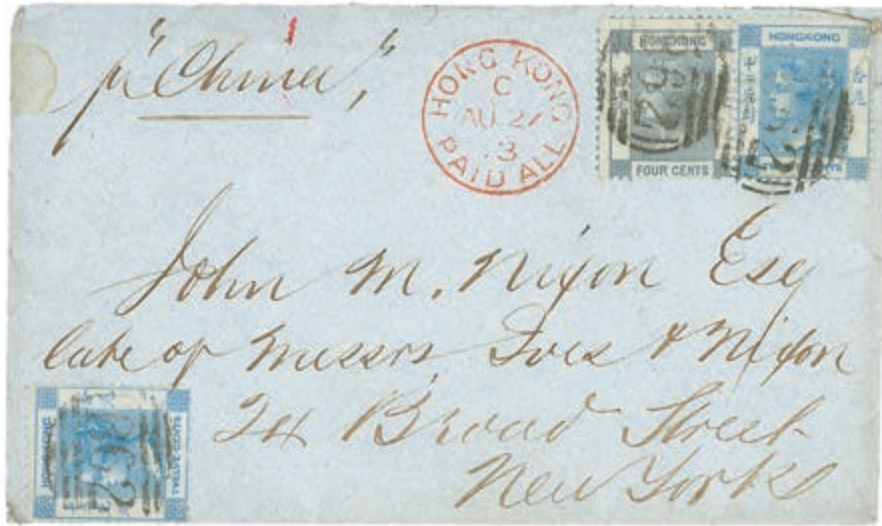 pr "China",
HONG KONG
C
AU 27
73
PAID ALL
HONGKONG
B62
FOUR CENTS
HONGKONG
B62
John M. Nixon Esq
late of Messrs, Ives & Nixon
24 Broad Street
New York
HONGKONG
B62
TWELVE CENTS